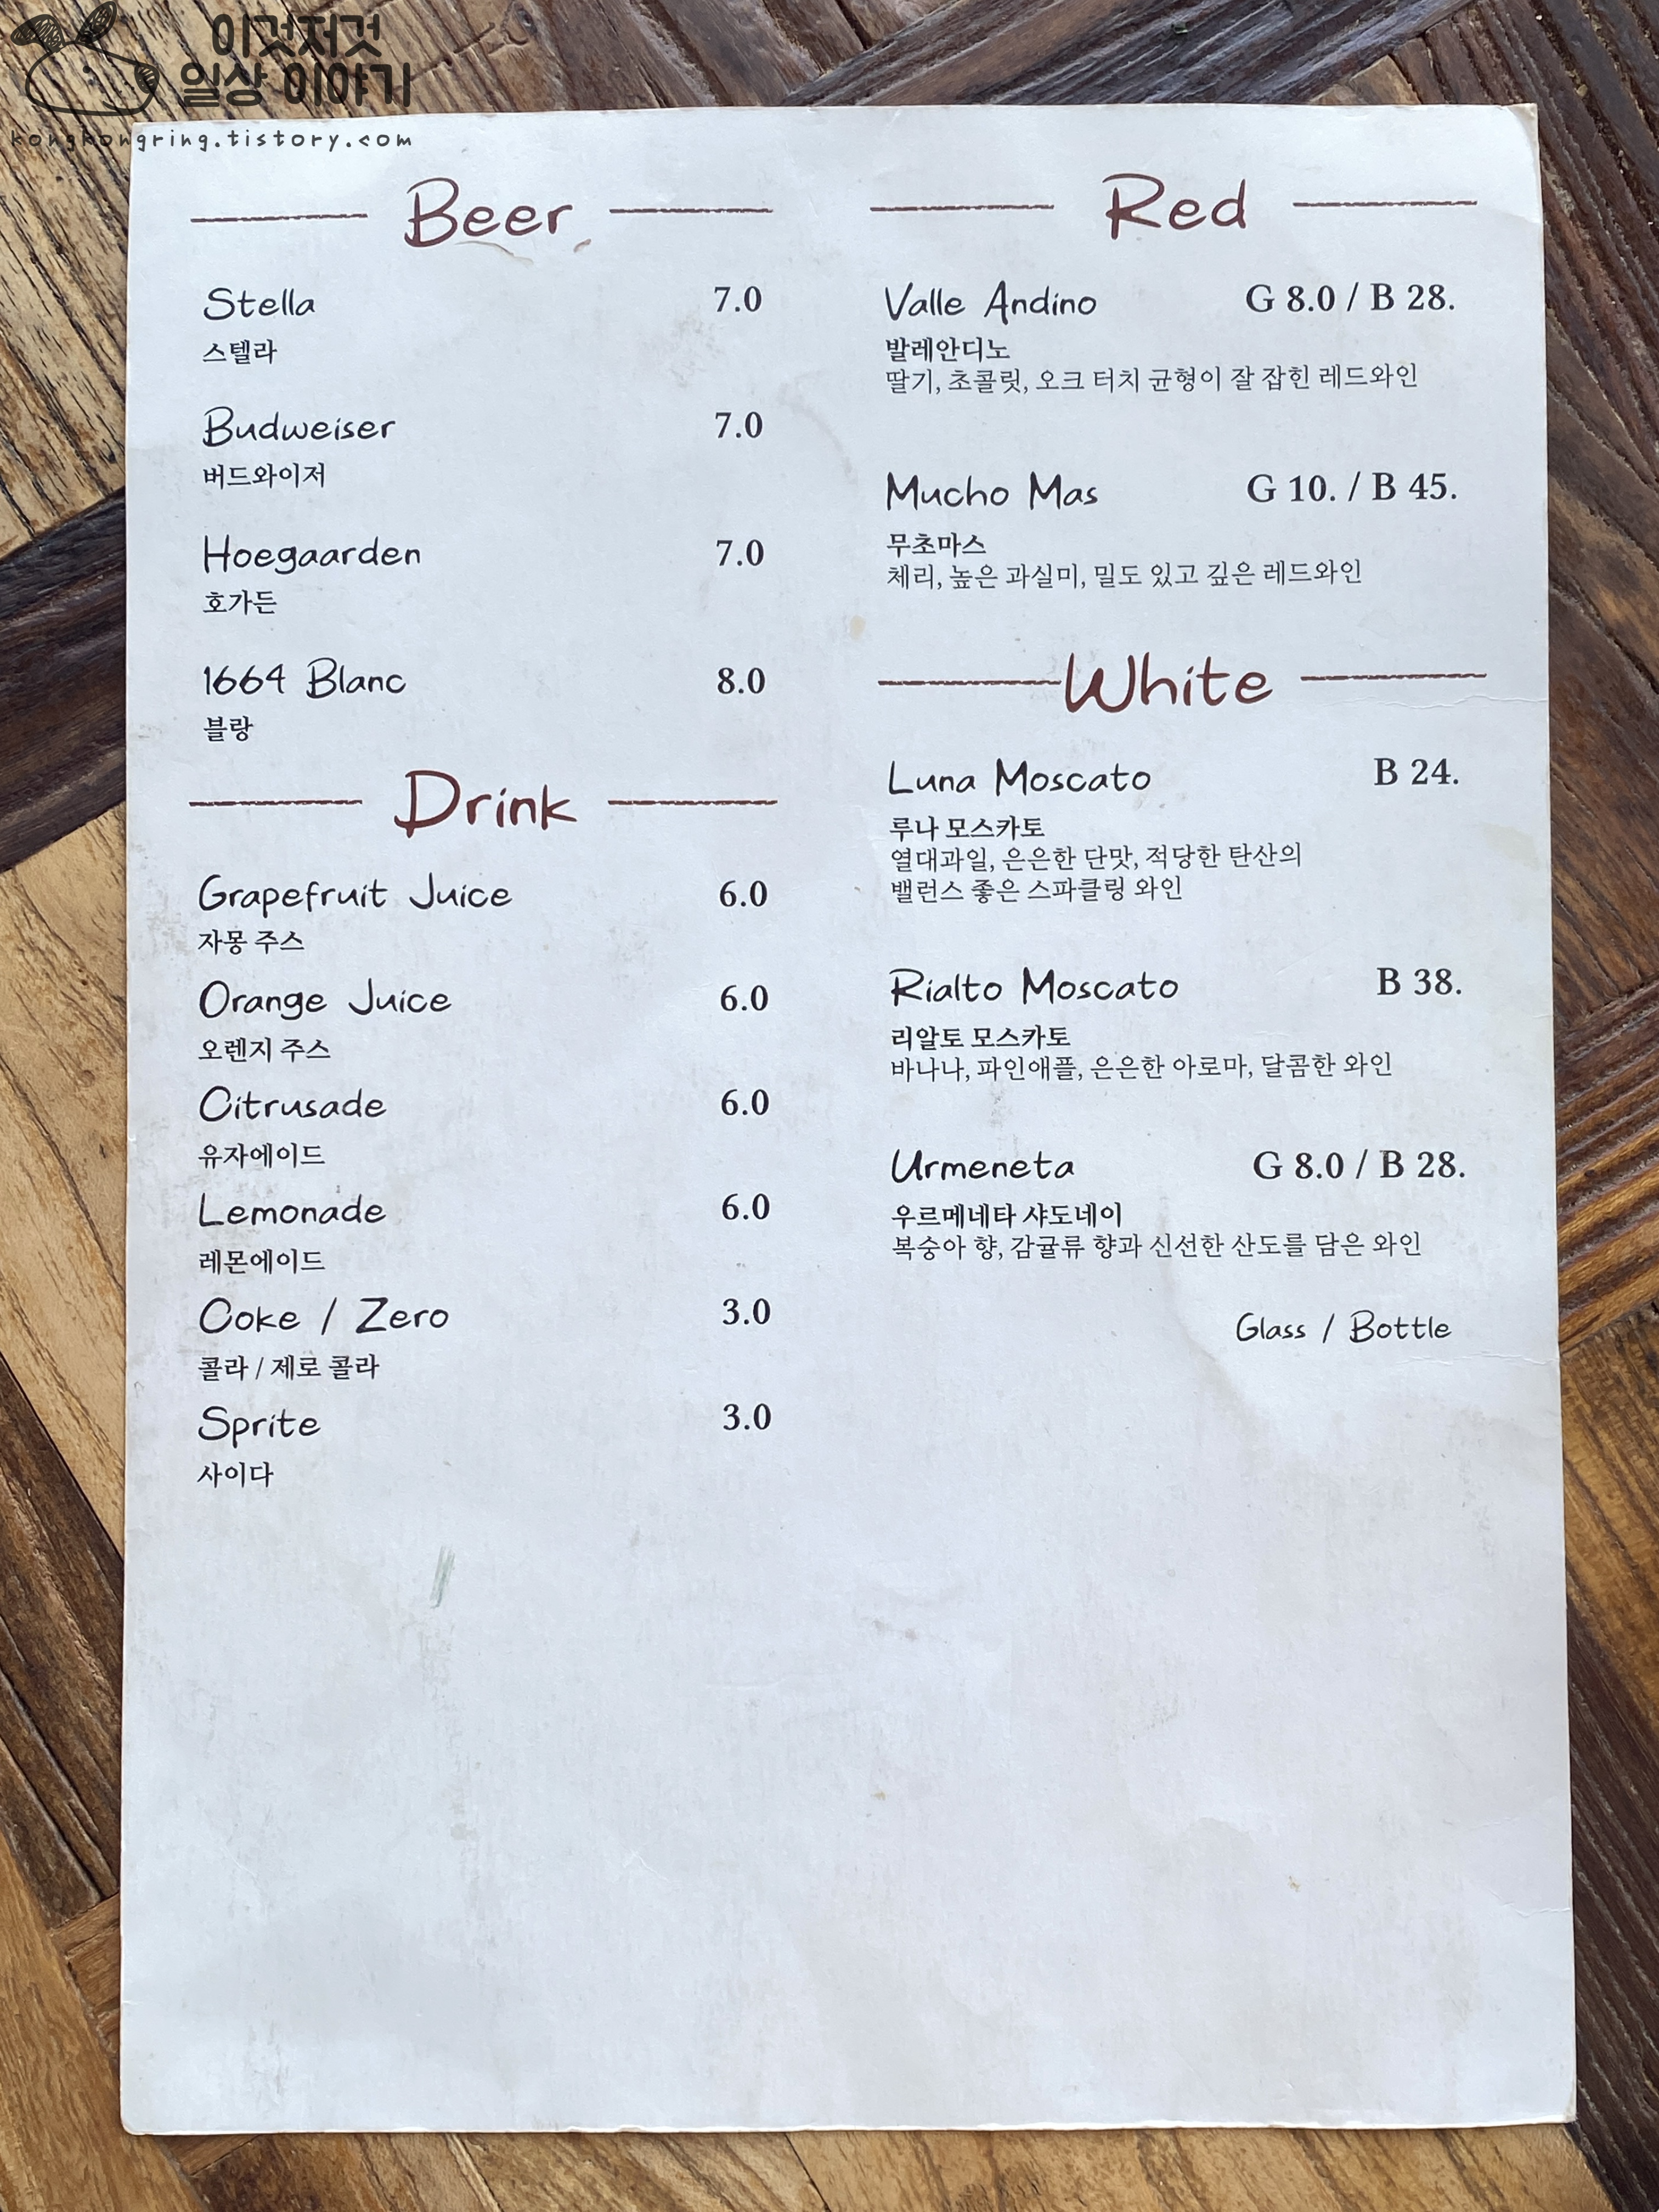 이것저것
일상 이야기
kongkongring.tistory.com
Beer
Stella 7.0
스텔라
Budweiser 7.0
버드와이저
Hoegaarden 7.0
호가든
1664 Blanc 8.0
블랑
Drink
Grapefruit Juice 6.0
자몽 주스
Orange Juice 6.0
오렌지 주스
Citrusade 6.0
유자에이드
Lemonade 6.0
레몬에이드
Coke / Zero 3.0
콜라 / 제로 콜라
Sprite 3.0
사이다
Red
Valle Andino G 8.0 / B 28.
발레안디노
딸기, 초콜릿, 오크 터치 균형이 잘 잡힌 레드와인
Mucho Mas G 10. / B 45.
무초마스
체리, 높은 과실미, 밀도 있고 깊은 레드와인
White
Luna Moscato B 24.
루나 모스카토
열대과일, 은은한 단맛, 적당한 탄산의
밸런스 좋은 스파클링 와인
Rialto Moscato B 38.
리알토 모스카토
바나나, 파인애플, 은은한 아로마, 달콤한 와인
Urmeneta G 8.0 / B 28.
우르메네타 샤도네이
복숭아 향, 감귤류 향과 신선한 산도를 담은 와인
Glass / Bottle